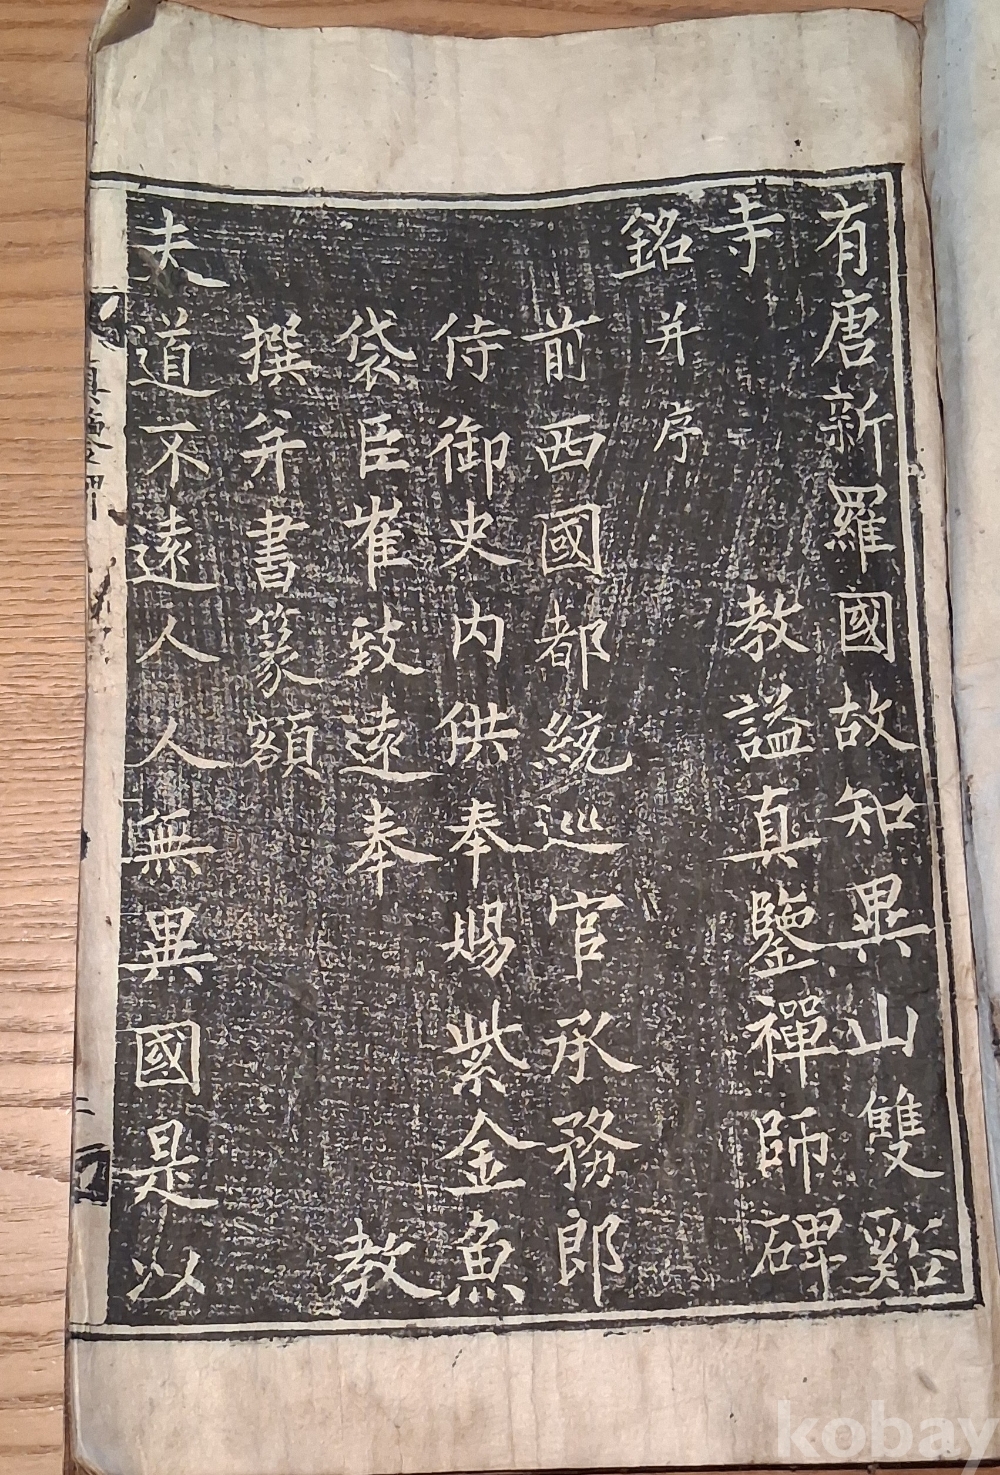 有唐新羅國故知異山雙谿
寺 教謚真鑒禪師碑
銘 并序
前西國都統巡官承務郎
侍御史內供奉賜紫金魚
袋臣崔致遠奉 教
撰并書篆額
夫道不遠人人無異國是以
kobay